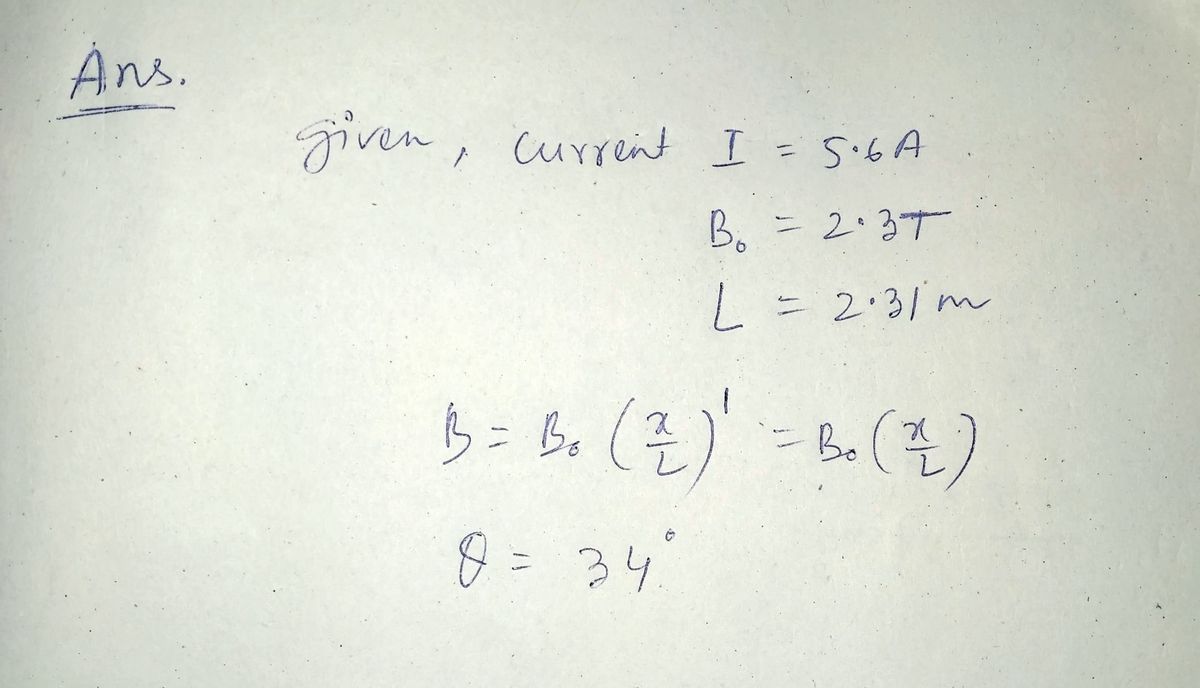 Ans.
given, current I = 5.6A
B₀ = 2.3T
L = 2.31m
B = B₀ (x/L)¹ = B₀ (x/L)
θ = 34°